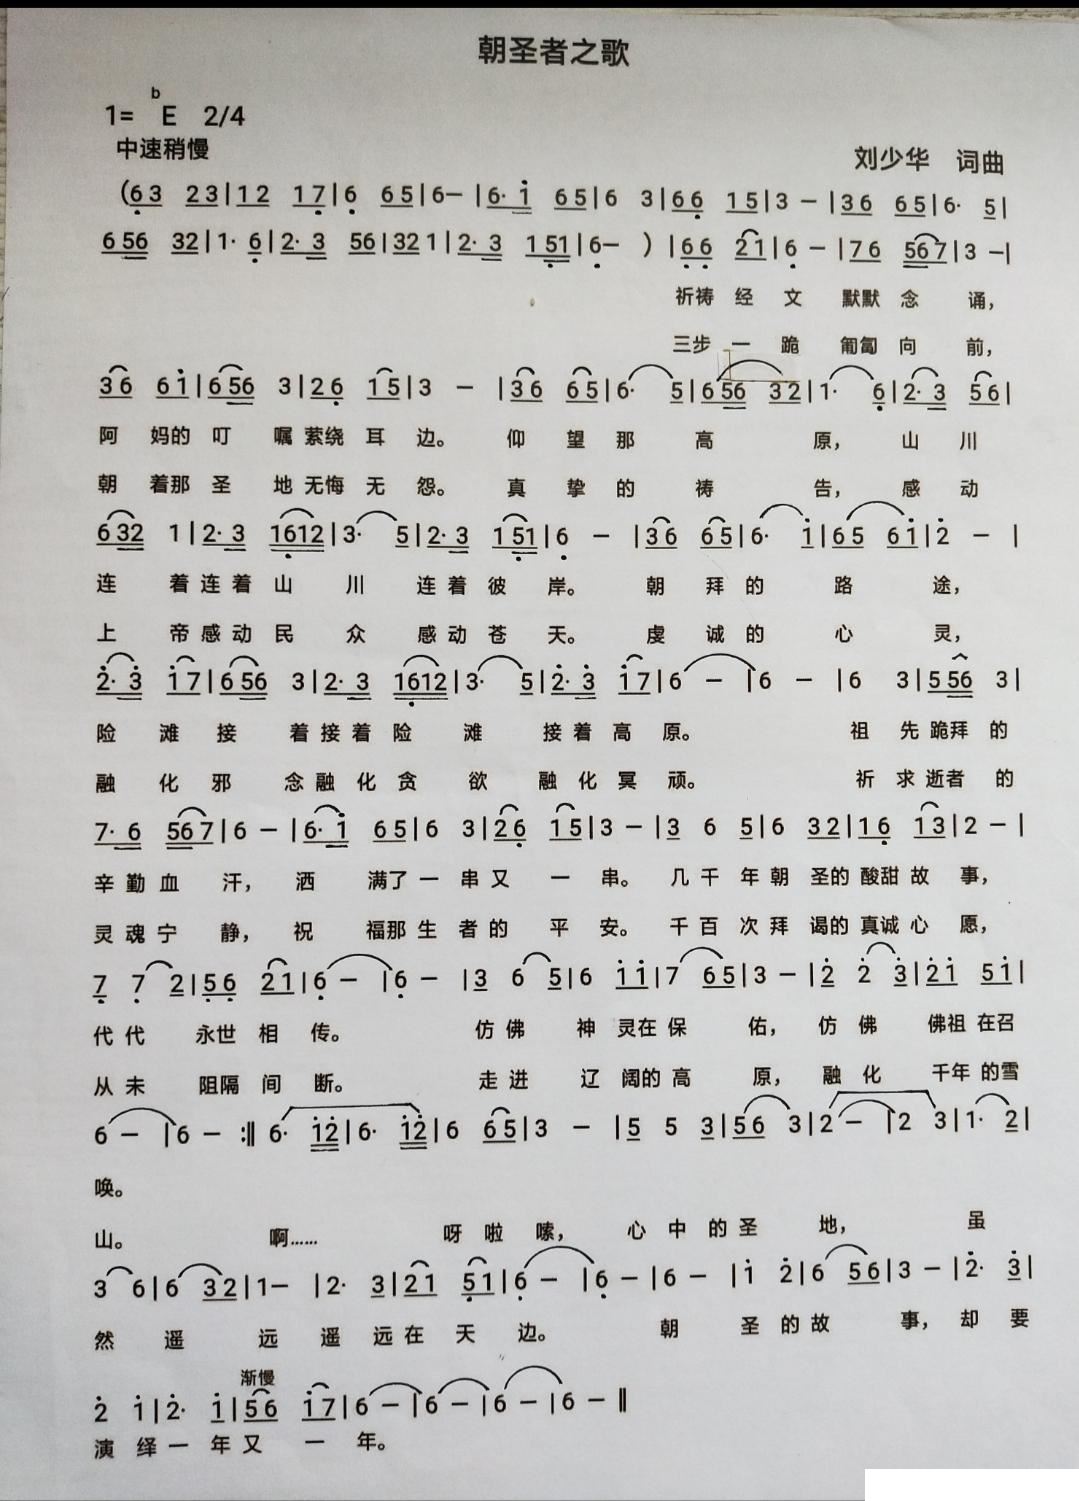 朝圣者之歌
1= bE 2/4
中速稍慢
刘少华 词曲
(6 3 2 3 | 1 2 1 7 | 6 6 5 | 6 — | 6· i 6 5 | 6 3 | 6 6 1 5 | 3 — | 3 6 6 5 | 6· 5 |
6 56 32 | 1· 6 | 2· 3 56 | 32 1 | 2· 3 1 51 | 6 — ) | 6 6 2 1 | 6 — | 7 6 56 7 | 3 — |
祈祷 经 文 默默 念 诵，
三步 一 跪 匍匐 向 前，
3 6 6 i | 6 56 3 | 2 6 1 5 | 3 — | 3 6 6 5 | 6· 5 | 6 56 3 2 | 1· 6 | 2· 3 5 6 |
阿 妈的 叮 嘱 萦绕 耳 边。 仰 望 那 高 原， 山 川
朝 着那 圣 地 无悔 无 怨。 真 挚 的 祷 告， 感 动
6 32 1 | 2· 3 1612 | 3· 5 | 2· 3 1 51 | 6 — | 3 6 6 5 | 6· i | 6 5 6 i | 2 — |
连 着 连 着 山 川 连 着 彼 岸。 朝 拜 的 路 途，
上 帝 感 动 民 众 感 动 苍 天。 虔 诚 的 心 灵，
2· 3 i 7 | 6 56 3 | 2· 3 1612 | 3· 5 | 2· 3 i 7 | 6 — | 6 — | 6 3 | 5 56 3 |
险 滩 接 着 接 着 险 滩 接 着 高 原。 祖 先 跪拜 的
融 化 邪 念 融 化 贪 欲 融 化 冥 顽。 祈 求 逝者 的
7· 6 56 7 | 6 — | 6· i 6 5 | 6 3 | 2 6 1 5 | 3 — | 3 6 5 | 6 3 2 | 1 6 1 3 | 2 — |
辛 勤 血 汗， 洒 满了 一 串 又 一 串。 几 千 年 朝 圣的 酸甜 故 事，
灵 魂 宁 静， 祝 福那 生 者 的 平 安。 千 百 次 拜 谒的 真诚 心 愿，
7 7 2 | 5 6 2 1 | 6 — | 6 — | 3 6 5 | 6 i i | 7 6 5 | 3 — | 2 2 3 | 2 i 5 i |
代 代 永世 相 传。 仿 佛 神 灵在 保 佑， 仿 佛 佛祖 在召
从 未 阻隔 间 断。 走 进 辽 阔的 高 原， 融 化 千年 的雪
6 — | 6 — :‖ 6· i2 | 6· i2 | 6 6 5 | 3 — | 5 5 3 | 5 6 3 | 2 — | 2 3 | 1· 2 |
唤。
山。 啊…… 呀 啦 嗦， 心 中 的 圣 地， 虽
3 6 | 6 3 2 | 1 — | 2· 3 | 2 1 5 1 | 6 — | 6 — | 6 — | i 2 | 6 5 6 | 3 — | 2· 3 |
然 遥 远 遥 远 在 天 边。 朝 圣 的 故 事， 却 要
渐慢
2 i | 2· i | 5 6 i 7 | 6 — | 6 — | 6 — | 6 — ‖
演 绎 一 年 又 一 年。